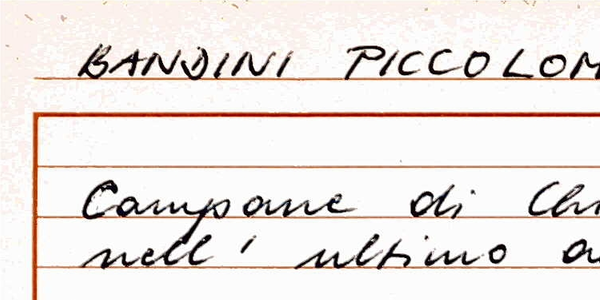 BANDINI PICCOLOM
Campane di Chi
nell' ultimo a